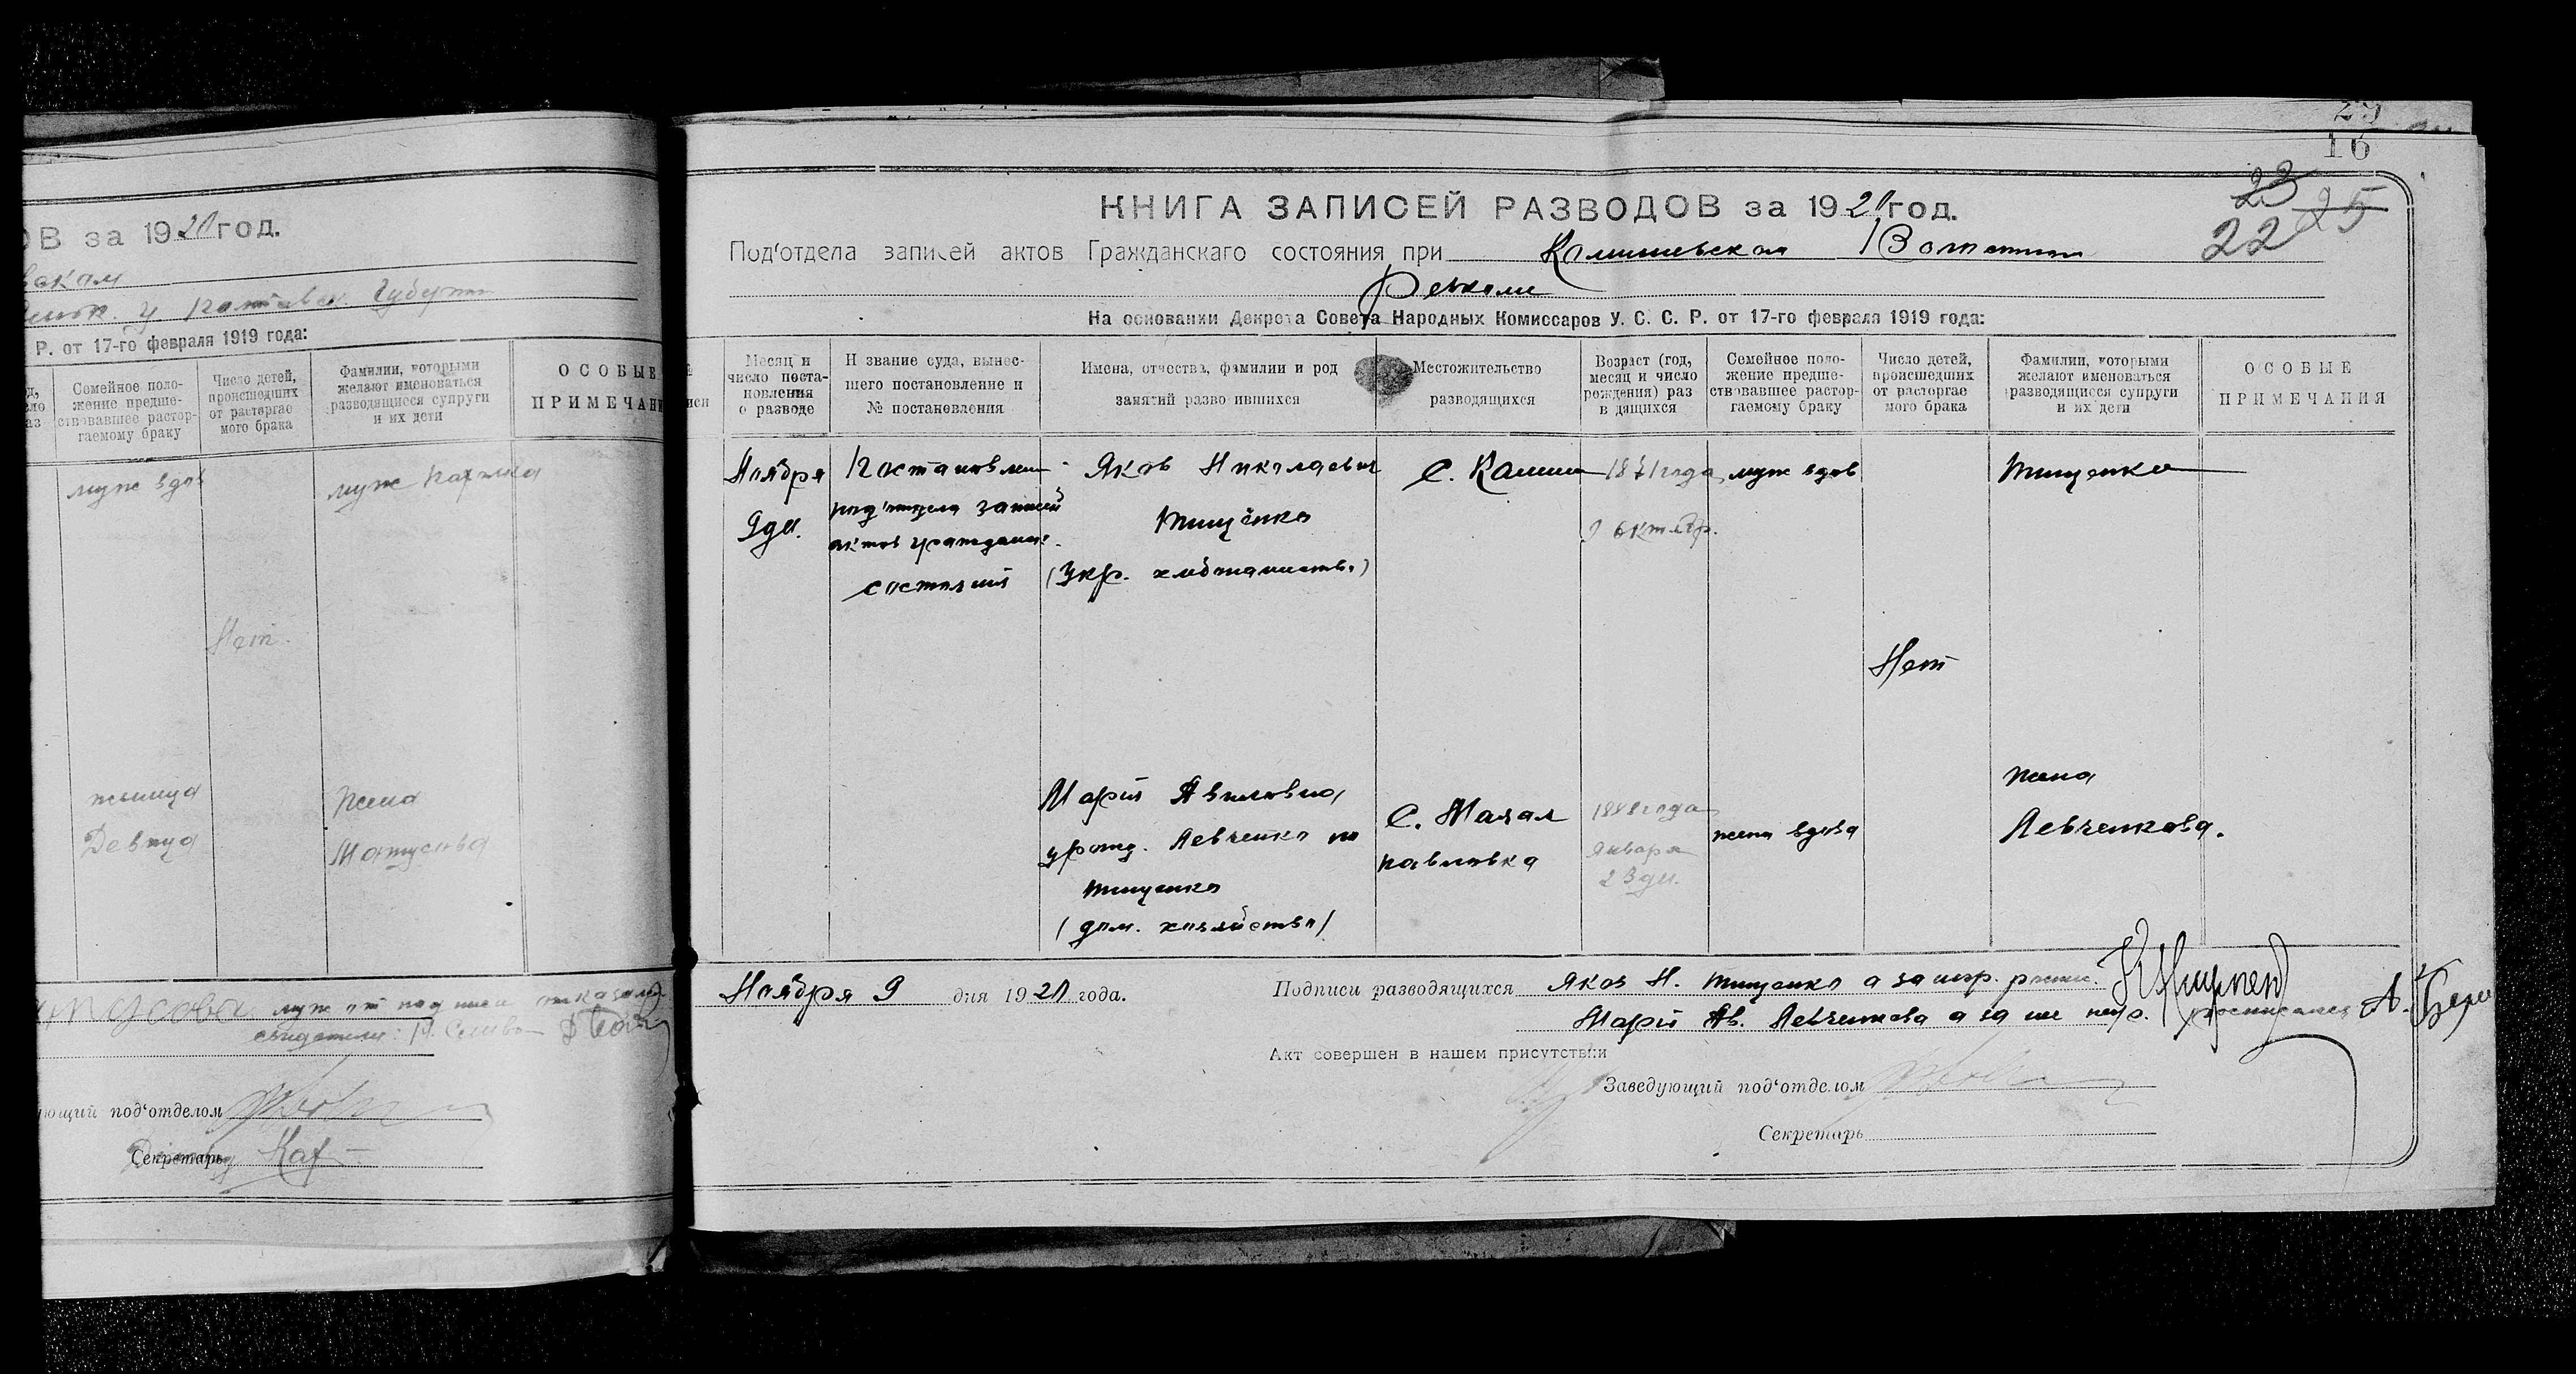 ОВ за 1920 год.
Губерни
Р. от 17-го февраля 1919 года:
Семейное поло-
жение предше-
ствовавшее растор-
гаемому браку
Число детей,
происшедших
от расторгае
мого брака
Фамилии, которыми
желают именоваться
разводящиеся супруги
и их дети
ОСОБЫЕ
ПРИМЕЧАНИ
муж вдов
муж
Нет.
Девица
жена
муж от подписи отказался
свидетели:
ющий под‘отделом
Секретарь
29
16
23
25
22
КНИГА ЗАПИСЕЙ РАЗВОДОВ за 1920 год.
Под‘отдела записей актов Гражданскаго состояния при
Ревкоме
На основании Декрета Совета Народных Комиссаров У. С. С. Р. от 17-го февраля 1919 года:
Месяц и
число поста-
новления
о разводе
Н звание суда, вынес-
шего постановление и
№ постановления
Имена, отчества, фамилии и род
занятий разво ившихся
Местожительство
разводящихся
Возраст (год,
месяц и число
рождения) раз
в дящихся
Семейное поло-
жение предше-
ствовавшее растор-
гаемому браку
Число детей,
происшедших
от расторгае
мого брака
Фамилии, которыми
желают именоваться
разводящиеся супруги
и их дети
ОСОБЫЕ
ПРИМЕЧАНИЯ
Ноября
9 дн.
Постановлен
под‘отдела записей
актов граждан.
состояния
Яков Николаевич
Тищенко
(Укр. хлебопашеств.)
С.
1871 года
октябр.
муж вдов
Тищенко
Нет
Мария
урожд. Левченко по
Тищенко
(дом. хозяйство)
С. Мачал
павловка
года
Января
23 дн.
жена вдова
жена
Левченкова.
Ноября 9 дня 1920 года.
Подписи разводящихся Яков Н. Тищенко а за негр. роспис.
Мария Ав. Левченкова а за нее негр. росписался А.
Акт совершен в нашем присутствии
Заведующий под‘отделом
Секретарь